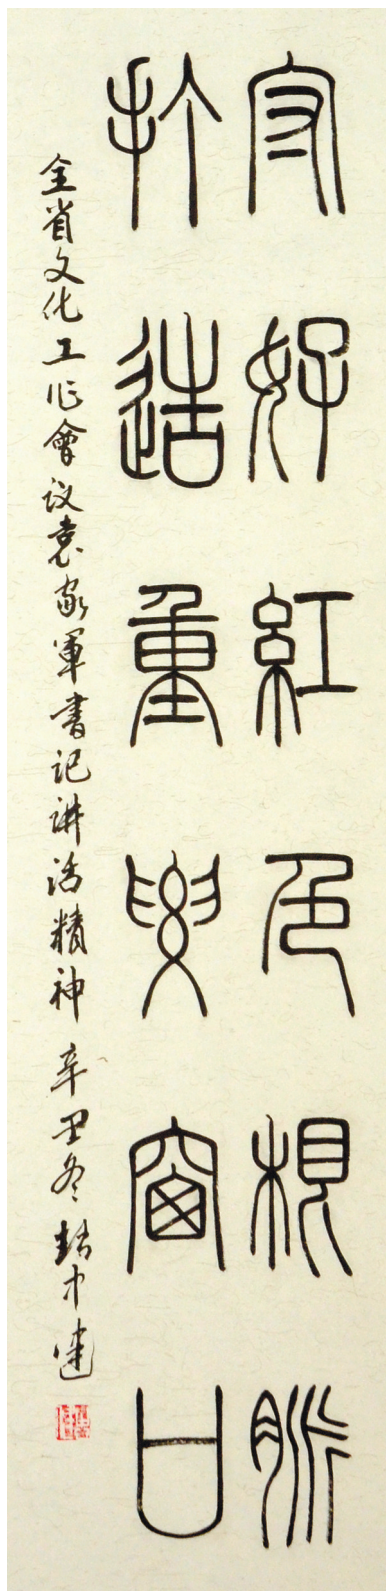 守好红色根脉
打造重要窗口
全省文化工作會议袁家軍書记讲话精神 辛丑冬